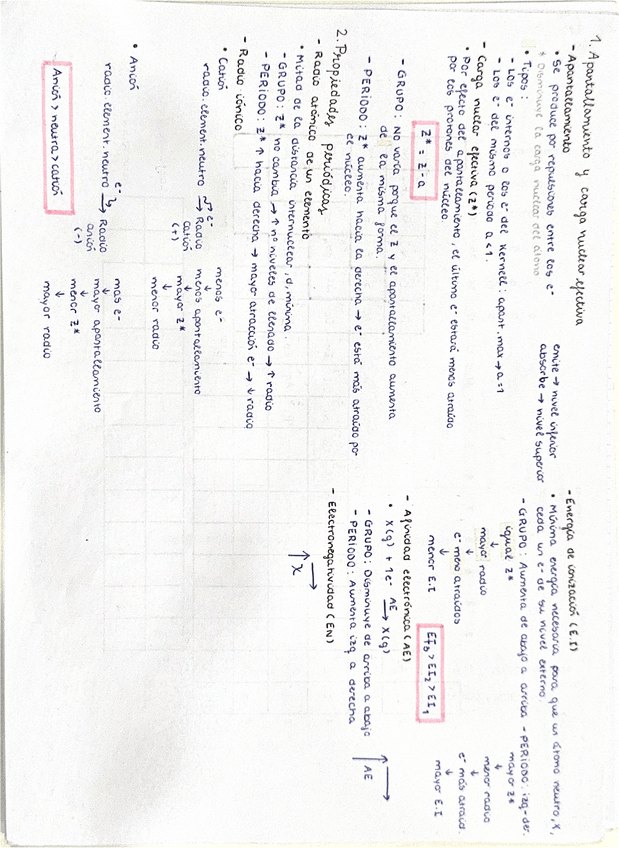 1. Apantallamiento y carga nuclear efectiva
- Apantallamiento
• Se produce por repulsiones entre los e⁻
* Disminuye la carga nuclear del átomo
• Tipos:
- Los e⁻ internos o los e⁻ del Kernell: apant. max → a = 1
- Los e⁻ del mismo periodo a < 1.
- Carga nuclear efectiva (Z*)
• Por efecto del apantallamiento, el último e⁻ estará menos atraído
por los protones del núcleo.
Z* = Z - a
- GRUPO: No varía porque el Z y el apantallamiento aumenta
de la misma forma.
- PERIODO: Z* aumenta hacia la derecha → e⁻ está más atraído por
el núcleo.
2. Propiedades periódicas
- Radio atómico de un elemento
• Mitad de la distancia internuclear, d, mínima.
- GRUPO: Z* no cambia → ↑ nº niveles de llenado → ↑ radio
- PERIODO: Z* ↑ hacia derecha → mayor atracción e⁻ → ↓ radio
- Radio iónico
• Catión
radio element. neutro → Radio catión (+)
e⁻
menos e⁻
↓
menos apantallamiento
↓
mayor Z*
↓
menor radio
• Anión
radio element. neutro → Radio anión (-)
e⁻
mas e⁻
↓
mayor apantallamiento
↓
menor Z*
↓
mayor radio
Anión > neutra > catión
emite → nivel inferior
absorbe → nivel superior
- Energía de ionización (E.I)
• Mínima energía necesaria para que un átomo neutro, X,
ceda un e⁻ de su nivel externo.
- GRUPO: Aumenta de abajo a arriba - PERIODO: izq-der.
igual Z*
↓
mayor radio
↓
e⁻ meno atraídos
↓
menor E.I
mayor Z*
↓
menor radio
↓
e⁻ más atraid.
↓
mayor E.I
EI₃ > EI₂ > EI₁
- Afinidad electrónica (AE)
• X(g) + 1e⁻ AE→ X(g)
- GRUPO: Disminuye de arriba a abajo
- PERIODO: Aumenta izq a derecha
AE
- Electronegatividad (EN)
↑ X →